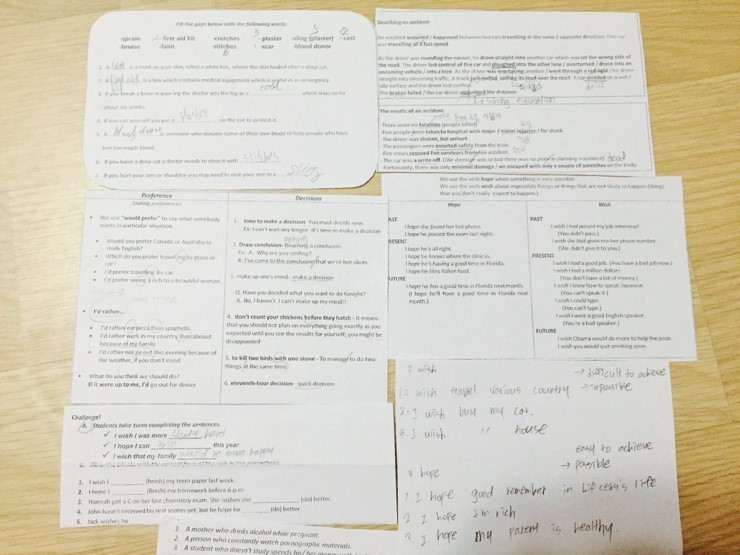 Fill the gaps below with the following words.
-sprain - first aid kit -crutches -plaster -sling (plaster) -cast
-bruise -faint -stitches -scar -blood donor
1. A scar is a mark on your skin, often a white line, where the skin healed after a deep cut.
2. A first aid is a box which contains medical equipment which is useful in an emergency.
3. If you break a bone in your leg the doctor sets the leg in a cast which stays on for
about six weeks.
4. If you cut yourself you put a plaster on the cut to protect it.
5. A blood donor is someone who donates some of their own blood to help people who have
lost too much blood.
6. If you have a deep cut a doctor needs to close it with stitches
7. If you hurt your arm or shoulder you may need to rest your arm in a sling
Describing an accident:
An accident occurred / happened between two cars travelling in the same / opposite direction. One car
was travelling at full speed.
As the driver was rounding the corner, he drove straight into another car which was on the wrong side of
the road. The driver lost control of the car and ploughed into the other lane / overturned / drove into an
oncoming vehicle / into a tree. As the driver was overtaking another / went through a red light / he drove
straight into oncoming traffic. A truck jack-knifed, spilling its load over the road. A car skidded on a wet /
oily surface and the driver lost control.
The brakes failed / the car driver misjudged the distance.
wrong estimation
The results of an accident:
There were no fatalities (people killed)
Five people were taken to hospital with major / minor injuries / for shock.
The driver was shaken, but unhurt.
The passengers were escorted safely from the train.
Fire crews rescued five survivors from the accident.
The car was a write-off (the damage was so bad there was no point in claiming insurance) dead
Fortunately, there was only minimal damage / we escaped with only a couple of scratches on the body
Preference
Stating preferences
We use "would prefer" to say what somebody
wants in particular situation
Would you prefer Canada or Australia to
study English?
Which do you prefer traveling by plane or
car?
I'd prefer traveling by car.
I'd prefer seeing a rich to a beautiful woman.
I'd rather...
I'd rather eat pizza than spaghetti.
I'd rather work in my country than abroad
because of my family.
I'd rather not go out this evening because of
the weather, if you don't mind
What do you think we should do?
If it were up to me, I'd go out for dinner
Decisions
1. time to make a decision- You must decide now.
Ex: I can't wait any longer. It's time to make a decision
2. Draw conclusion- Reaching a conclusion.
Ex: A: Why are you smiling?
B. I've come to the conclusion that we're her aliens.
3. make up one's mind- make a decision
Q. Have you decided what you want to do tonight?
A. No, I haven't. I can't make up my mind!!
4. don't count your chickens before they hatch - it means
that you should not plan on everything going exactly as you
expected until you see the results for yourself; you might be
disappointed
5. to kill two birds with one stone - To manage to do two
things at the same time
6. eleventh-hour decision- quick decision
We use the verb hope when something is very possible.
We use the verb wish about impossible things or things that are not likely to happen (things
that you don't really expect to happen.)
Hope
Wish
AST
I hope she found her lost phone.
I hope he passed the exam last night.
RESENT
I hope he's all right.
I hope he knows where the clinic is.
I hope he's having a good time in Florida.
I hope he likes Italian food.
UTURE
I hope he has a good time in Florida next month.
(I hope he'll have a good time in Florida next
month.)
PAST
I wish I had passed my job interview!
(You didn't pass.)
I wish she had given me her phone number
(She didn't give it to you.)
PRESENT
I wish I had a good job. (You have a bad job now.)
I wish I had a million dollars.
(You don't have a lot of money.)
I wish I knew how to speak Japanese.
(You can't speak it.)
I wish I could type.
(You can't type.)
I wish I were a good English speaker
(You're a bad speaker.)
FUTURE
I wish Obama would do more to help the poor.
I wish you would quit smoking soon.
Challenge!
a. Students take turn completing the sentences.
✓ I wish I was more
✓ I hope I can this year.
✓ I wish that my family would be more happy
1. I wish I (finish) my term paper last week.
2. I hope I (finish) my homework before 6 p.m.
3. Hannah got a C on her last chemistry exam. She wishes she (do) better.
4. John hasn't received his test scores yet, but he hope he (do) better.
5. Jack wishes he
1. A mother who drinks alcohol while pregnant.
2. A person who constantly watch pornographic materials.
wish → difficult to achieve
1. I wish travel various country → impossible
2. I wish buy my car.
3. I wish " house
easy to achieve
hope → possible
1 I hope good remember in Lifcebu's life
2 I hope I'm rich
3 I hope my parent is healthy.